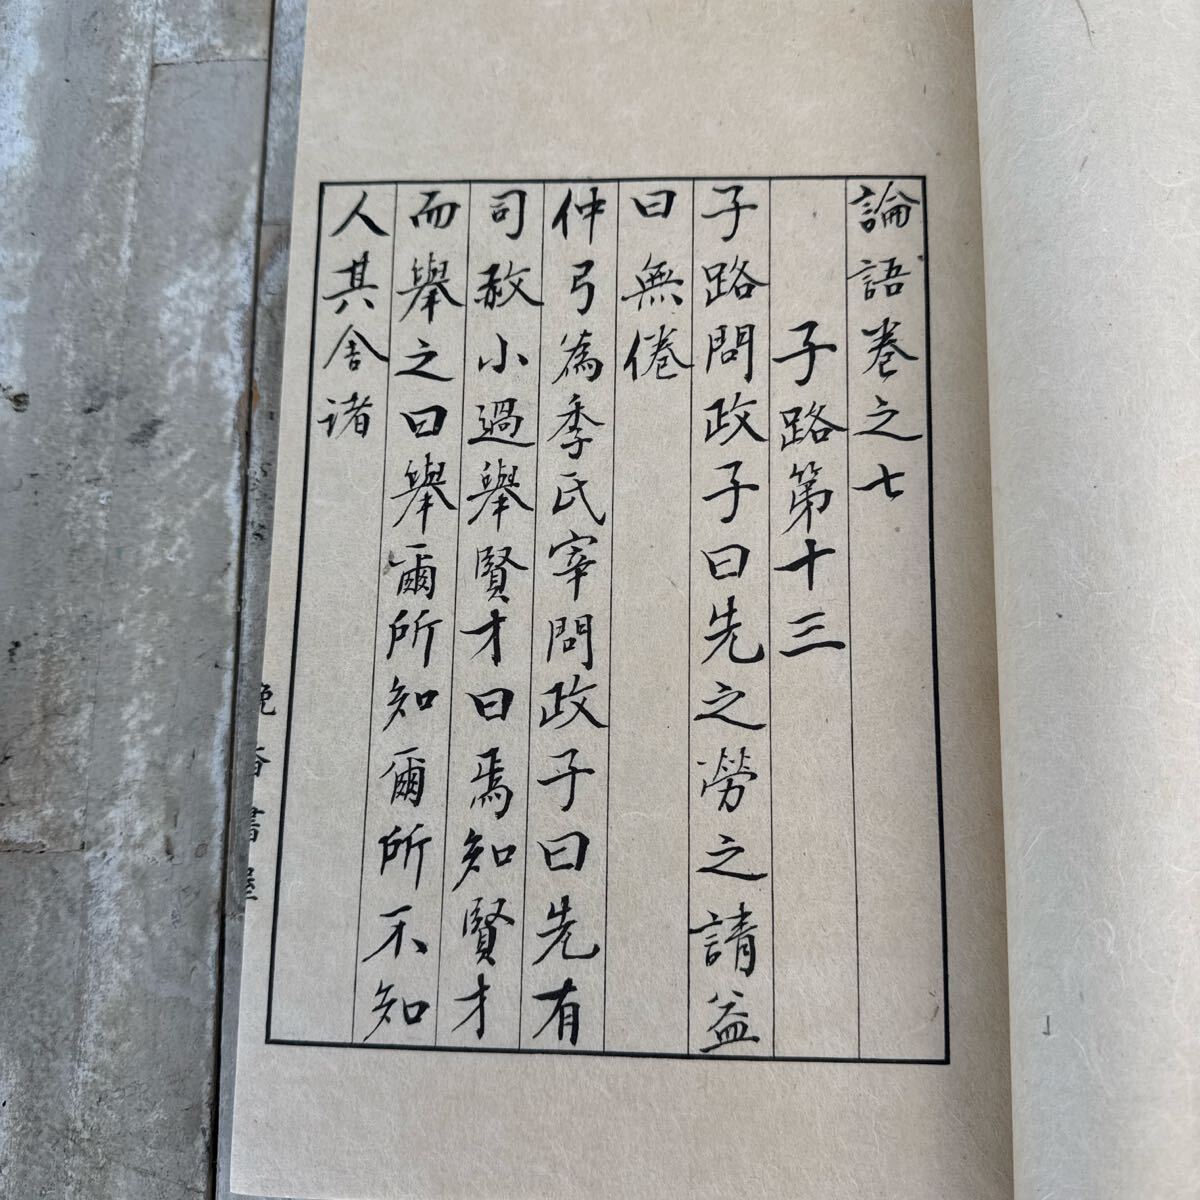 論語卷之七
子路第十三
子路問政子曰先之勞之請益
曰無倦
仲弓為季氏宰問政子曰先有
司赦小過舉賢才曰焉知賢才
而舉之曰舉爾所知爾所不知
人其舍诸
晚香書屋